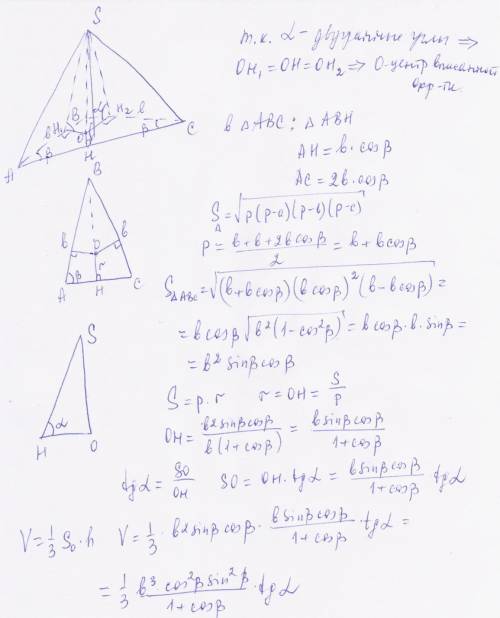 S
B
H₁
H₂
b
b
O
β
β
r
A
H
C
B
b
b
O
r
β
A
H
C
S
α
H
O
т.к. α - двугранные углы ⇒
OH₁ = OH = OH₂ ⇒ O-центр вписанной
окр-ти.
в △ABC: △ABH
AH = b·cosβ
AC = 2b·cosβ
S△ = √(p(p-a)(p-b)(p-c))
p = (b+b+2bcosβ)/2 = b+bcosβ
S△ABC = √((b+bcosβ)(bcosβ)²(b-bcosβ)) =
= bcosβ √(b²(1-cos²β)) = bcosβ·b·sinβ =
= b² sinβcosβ
S = p·r r = OH = S/p
OH = b²sinβcosβ/b(1+cosβ) = bsinβcosβ/1+cosβ
tgα = SO/OH SO = OH·tgα = bsinβcosβ/1+cosβ tgα
V = 1/3 S₀·h V = 1/3·b²sinβcosβ·bsinβcosβ/1+cosβ·tgα =
= 1/3 b³·cos²βsin²β/1+cosβ·tgα